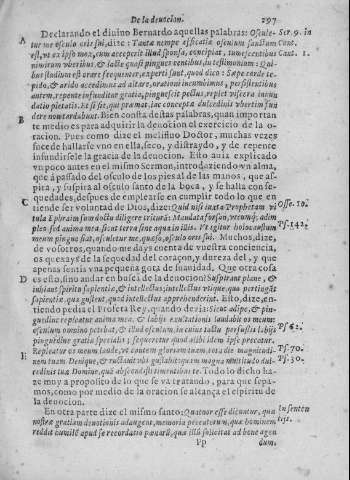 De la deuocion. 297
Declarando el diuino Bernardo aquellas palabras: Oscule- Ser. 9. in
tur me osculo oris sui, dize: Tantæ nempe efficatiæ osculum sanctum Cant.
est, vt ex ipso mox, cum acceperit illud sponsa, concipiat, tumescentibus Cant. 1.
nimirum vberibus, & lacte quasi pinguescentibus, in testimonium: Qui-
bus studium est orare frequenter, experti sunt, quod dico: Sæpe corde te-
pido, & arido accedimus ad altare, orationi incumbimus, persistentibus
autem, repente infunditur gratia, pinguescit pectus, replet viscera inun-
datio pietatis. Et si sit, qui præmat, lac conceptæ dulcedinis vbertim fun
dere non tardabunt. Bien consta destas palabras, quan importan
B
te medio es para adquirir la deuocion el exercicio de la o-
racion. Pues como dize el mellifluo Doctor, muchas vezes
sucede hallarse vno en ella, seco, y distraydo, y de repente
infundirsele la gracia de la deuocion. Esto auia explicado
vn poco antes en el mismo Sermon, introduziendo vn alma,
que à passado del osculo de los pies al de las manos, que as-
pira, y suspira al osculo santo de la boca, y se halla con se-
quedades, despues de emplearse en cumplir todo lo que en
C
tiende ser voluntad de Dios, dize: Quid nisi iuxta Prophetam vi Osse. 10.
tula Ephraim sum doctu diligere trituram: Mandata forsan, vtcumque, adim
pleo sed anima mea, sicut terra sine aqua in illis. Vt igitur holocaustum Ps. 142.
meum pingue fiat, osculetur me, quæso, osculo oris sui. Muchos, dize,
de vosotros, quando me days cuenta de vuestra conciencia,
os quexays de la sequedad del coraçon, y dureza del, y que
apenas sentis vna pequeña gota de suauidad. Que otra cosa
D
es esto, sino andar en busca de la deuocion? Suspirant plane, &
inhiant spiritu sapientiæ, & intellectus; intellectus vtique, quo pertingãt
sapientiæ, qua gustent, quod intellectus apprehenderint. Esto, dize, en-
tiendo pedia el Profeta Rey, quando dezia: Sicut adipe, & pin-
guedine repleatur anima mea, & labijs exultationis laudabit os meum:
osculum omnino petebat, & illud osculum, in cuius tactu perfusis labijs Ps. 62.
pinguedine gratia specialis; sequeretur quod alibi idem ipse precatur.
Repleatur os meum laude, vt cantem gloriam tuam, tota die magnitudi- Ps. 70.
E
nem tuam. Denique, & ructauit vbi gustabit quam magna multitudo dul- Ps. 30.
cedinis tuæ Domine, quã abscondisti timentibus te. Todo lo dicho ha-
ze muy a proposito de lo que se va tratando, para que sepa-
mos, como por medio de la oracion se alcança el espiritu de
la deuocion.
En otra parte dize el mismo santo: Quatuor esse dicuntur, qua In senten
nostræ gratiam deuotionis adaugent, memoria peccatorum, quæ hominem tijs.
reddit humilẽ apud se recordatio pœnarũ, quæ illũ solicitat ad bene agen
Pp dum.